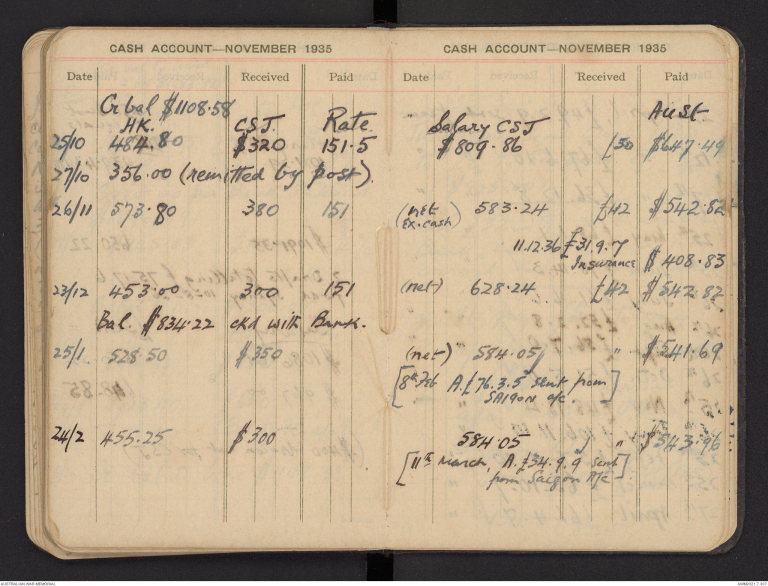 CASH ACCOUNT—NOVEMBER 1935
Date Received Paid
Cr bal $1108.58
HK. CSJ. Rate.
25/10 484.80 $320 151.5
27/10 356.00 (remitted by post).
26/11 573.80 380 151
23/12 453.00 300 151
Bal. $834.22 ckd with Bank.
25/1 528.50 $350
24/2 455.25 $300
CASH ACCOUNT—NOVEMBER 1935
Date Received Paid
Salary CSJ Aust
$809.86 £50 $647.49
(net 583.24 £42 $542.82
Ex. cash)
11.12.36 £31.9.7
Insurance $408.83
(net) 628.24 £42 $542.82
(net) 584.05 " $541.69
[8th Feb A.£76.3.5 sent from
SAIGON a/c]
584.05 " $543.96
[11th March, A.£34.9.9 sent
from Saigon A/c]
AUSTRALIAN WAR MEMORIAL